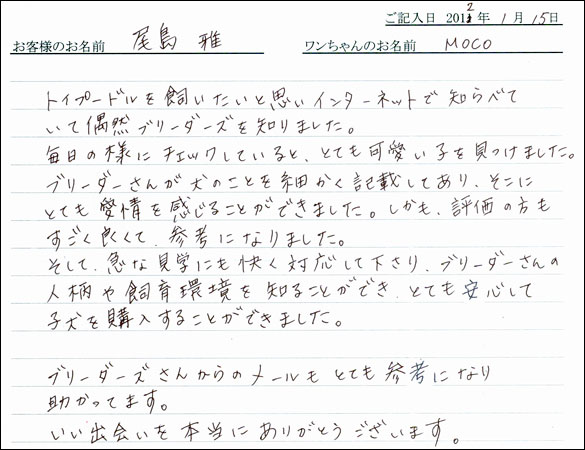 ご記入日 2012年1月15日
お客様のお名前 尾島 雅 ワンちゃんのお名前 MOCO
トイプードルを飼いたいと思いインターネットで知らべて
いて偶然ブリーダーズを知りました。
毎日の様にチェックしていると、とても可愛い子を見つけました。
ブリーダーさんが犬のことを細かく記載してあり、そこに
とても愛情を感じることができました。しかも、評価の方も
すごく良くて、参考になりました。
そして、急な見学にも快く対応して下さり、ブリーダーさんの
人柄や飼育環境を知ることができ、とても安心して
子犬を購入することができました。
ブリーダーズさんからのメールもとても参考になり
助かってます。
いい出会いを本当にありがとうございます。